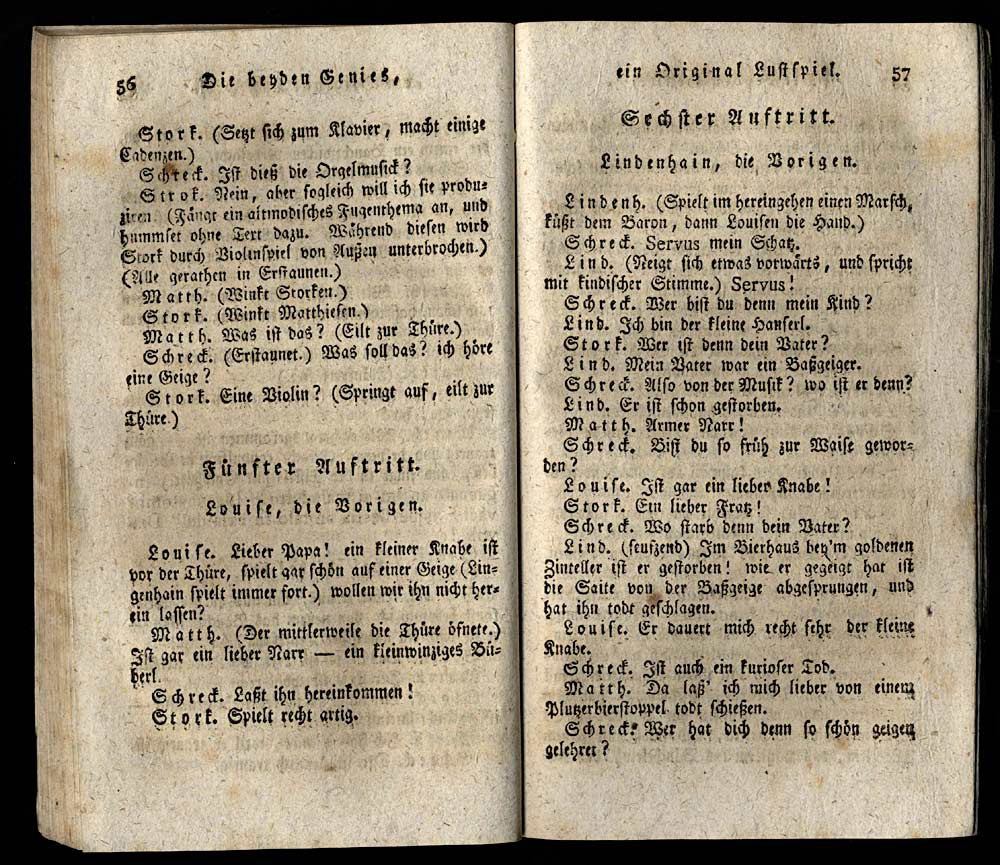 56 Die beyden Genies,
Stork. (Setzt sich zum Klavier, macht einige
Cadenzen.)
Schreck. Ist dieß die Orgelmusick?
Strok. Nein, aber sogleich will ich sie produ-
ziren. (Fängt ein altmodisches Fugenthema an, und
hummset ohne Text dazu. Während diesen wird
Stork durch Violinspiel von Außen unterbrochen.)
(Alle gerathen in Erstaunen.)
Matth. (Winkt Storken.)
Stork. (Winkt Matthiesen.)
Matth. Was ist das? (Eilt zur Thüre.)
Schreck. (Erstaunet.) Was soll das? ich höre
eine Geige?
Stork. Eine Violin? (Springt auf, eilt zur
Thüre.)
Fünfter Auftritt.
Louise, die Vorigen.
Louise. Lieber Papa! ein kleiner Knabe ist
vor der Thüre, spielt gar schön auf einer Geige (Lin-
genhain spielt immer fort.) wollen wir ihn nicht her-
ein lassen?
Matth. (Der mittlerweile die Thüre öfnete.)
Ist gar ein lieber Narr — ein kleinwinziges Bü-
berl.
Schreck. Laßt ihn hereinkommen!
Stork. Spielt recht artig.
ein Original Lustspiel. 57
Sechster Auftritt.
Lindenhain, die Vorigen.
Lindenh. (Spielt im hereingehen einen Marsch,
küßt dem Baron, dann Louisen die Hand.)
Schreck. Servus mein Schatz.
Lind. (Neigt sich etwas vorwärts, und spricht
mit kindischer Stimme.) Servus!
Schreck. Wer bist du denn mein Kind?
Lind. Ich bin der kleine Hanserl.
Stork. Wer ist denn dein Vater?
Lind. Mein Vater war ein Baßgeiger.
Schreck. Also von der Musik? wo ist er denn?
Lind. Er ist schon gestorben.
Matth. Armer Narr!
Schreck. Bist du so früh zur Waise gewor-
den?
Louise. Ist gar ein lieber Knabe!
Stork. Ein lieber Fratz!
Schreck. Wo starb denn dein Vater?
Lind. (seufzend) Im Bierhaus bey'm goldenen
Zinteller ist er gestorben! wie er gegeigt hat ist
die Saite von der Baßgeige abgesprungen, und
hat ihn todt geschlagen.
Louise. Er dauert mich recht sehr der kleine
Knabe.
Schreck. Ist auch ein kurioser Tod.
Matth. Da laß' ich mich lieber von einem
Plutzerbierstoppel todt schießen.
Schreck. Wer hat dich denn so schön geigen
gelehret?